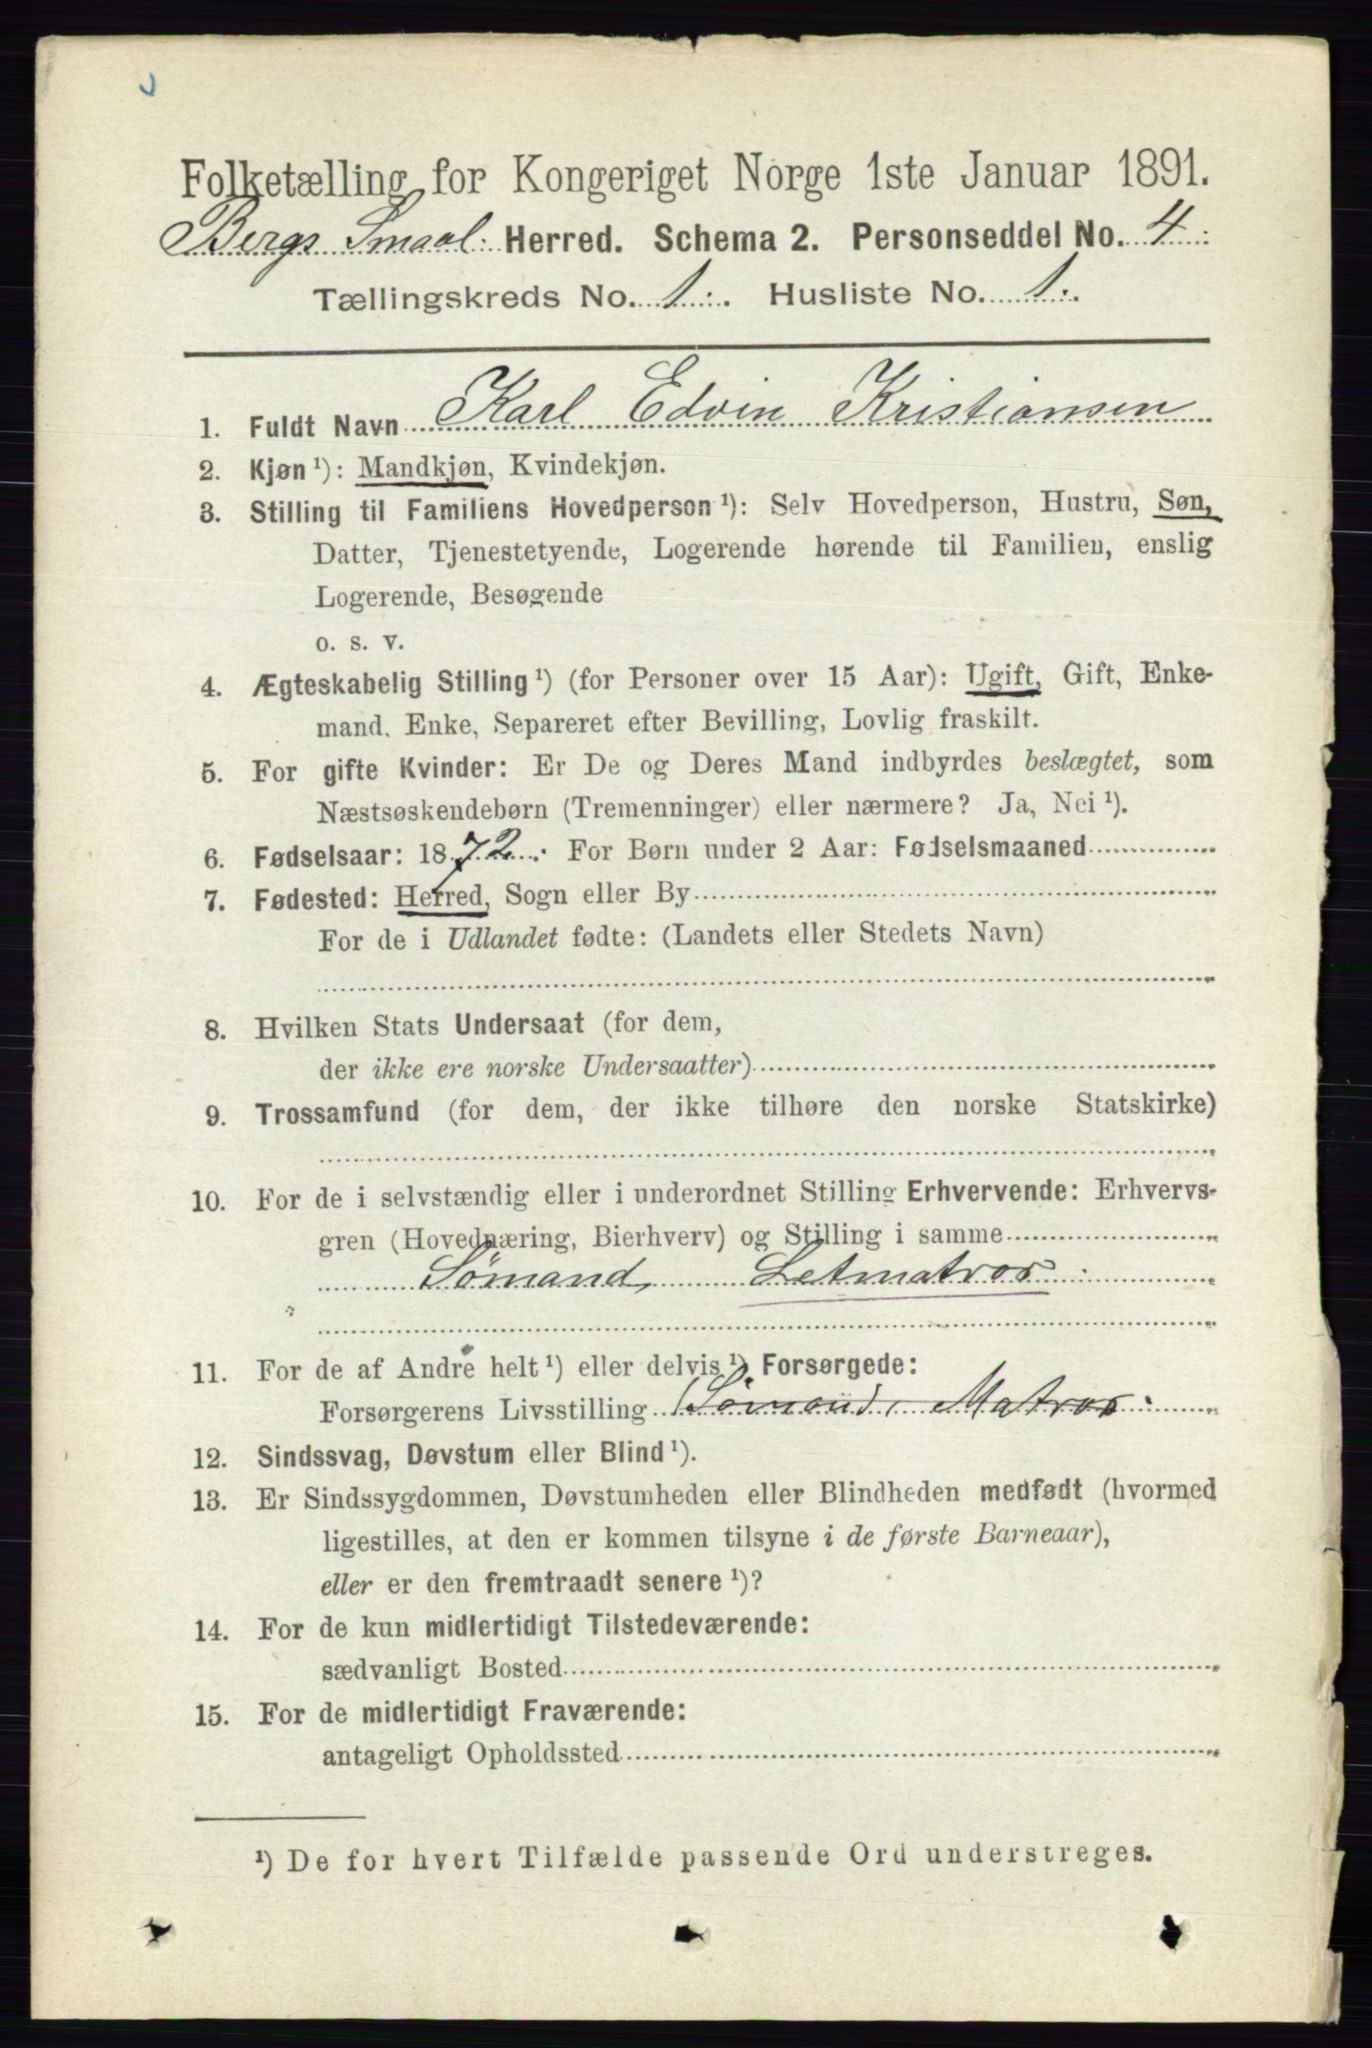 Folketælling for Kongeriget Norge 1ste Januar 1891.
Bergs Smaal: Herred. Schema 2. Personseddel No. 4
Tællingskreds No. 1. Husliste No. 1.
1. Fuldt Navn Karl Edvin Kristiansen
2. Kjøn ¹): Mandkjøn, Kvindekjøn.
3. Stilling til Familiens Hovedperson ¹): Selv Hovedperson, Hustru, Søn,
Datter, Tjenestetyende, Logerende hørende til Familien, enslig
Logerende, Besøgende
o. s. v.
4. Ægteskabelig Stilling ¹) (for Personer over 15 Aar): Ugift, Gift, Enke-
mand, Enke, Separeret efter Bevilling, Lovlig fraskilt.
5. For gifte Kvinder: Er De og Deres Mand indbyrdes beslægtet, som
Næstsøskendebørn (Tremenninger) eller nærmere? Ja, Nei ¹).
6. Fødselsaar: 1872. For Børn under 2 Aar: Fødselsmaaned
7. Fødested: Herred, Sogn eller By
For de i Udlandet fødte: (Landets eller Stedets Navn)
8. Hvilken Stats Undersaat (for dem,
der ikke ere norske Undersaatter)
9. Trossamfund (for dem, der ikke tilhøre den norske Statskirke)
10. For de i selvstændig eller i underordnet Stilling Erhvervende: Erhvervs-
gren (Hovednæring, Bierhverv) og Stilling i samme
Sömand, Letmatros
11. For de af Andre helt ¹) eller delvis ¹) Forsørgede:
Forsørgerens Livsstilling (Sömand), Matros
12. Sindssvag, Døvstum eller Blind ¹).
13. Er Sindssygdommen, Døvstumheden eller Blindheden medfødt (hvormed
ligestilles, at den er kommen tilsyne i de første Barneaar),
eller er den fremtraadt senere ¹)?
14. For de kun midlertidigt Tilstedeværende:
sædvanligt Bosted
15. For de midlertidigt Fraværende:
antageligt Opholdssted
¹) De for hvert Tilfælde passende Ord understreges.